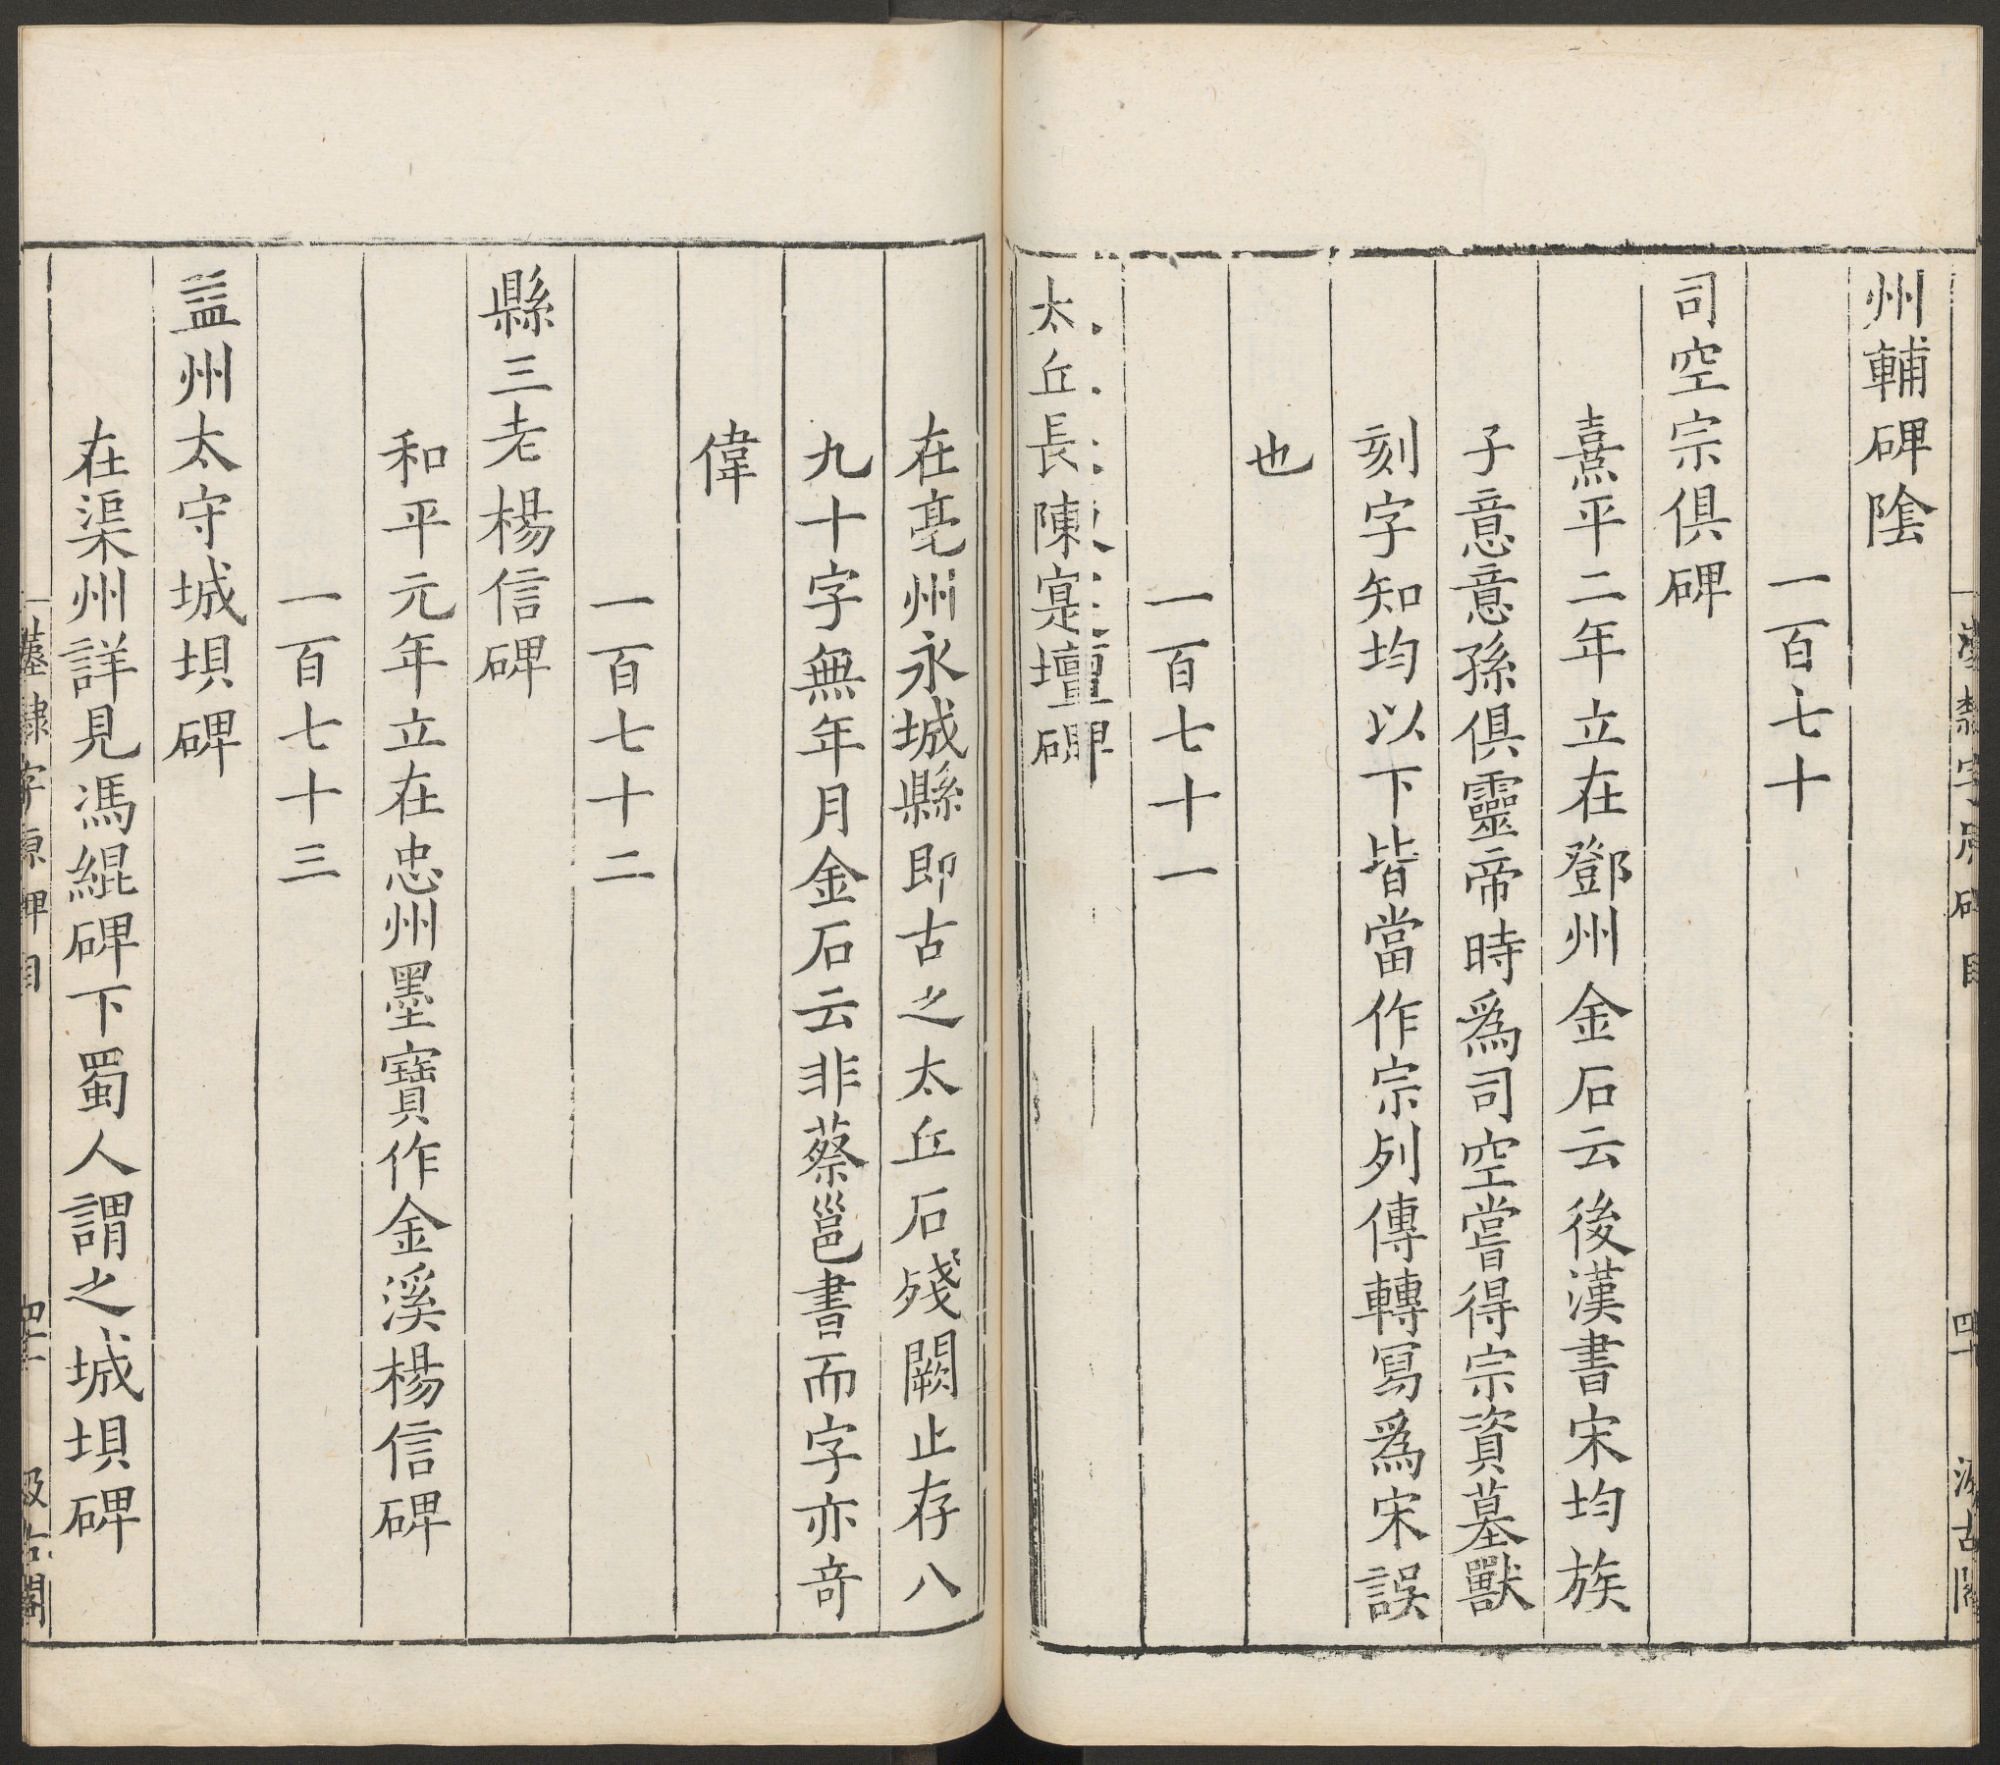 州輔碑陰
一百七十
司空宗俱碑
熹平二年立在鄧州金石云後漢書宋均族
子意意孫俱靈帝時爲司空嘗得宗資墓獸
刻字知均以下皆當作宗列傳轉寫爲宋誤
也
一百七十一
太丘長陳寔壇碑
在亳州永城縣即古之太丘石殘闕止存八
九十字無年月金石云非蔡邕書而字亦奇
偉
一百七十二
縣三老楊信碑
和平元年立在忠州墨寶作金溪楊信碑
一百七十三
益州太守城垻碑
在渠州詳見馮緄碑下蜀人謂之城垻碑
漢隸字原碑目
汲古閣